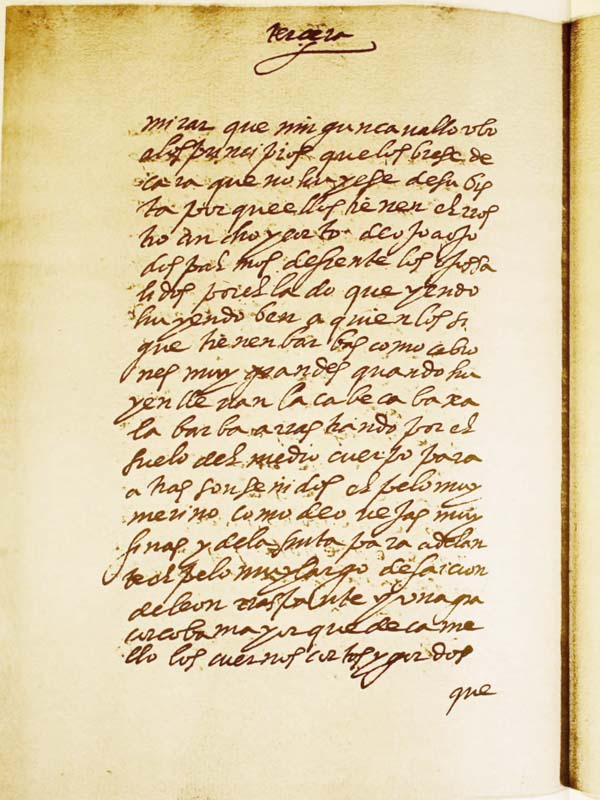 tercera
mirar que ningun cavallo vbo
a los principios que los biese de
cara que no huyese de su bis
ta porque ellos tienen el rros
tro ancho y corto de ojo a ojo
dos palmos de frente los ojos sa
lidos por el lado que yendo
huyendo ben a quien los si
gue tienen barbas como cabro
nes muy grandes quando hu
yen llevan la cabeca baxa
la barba arrastrando por el
suelo del medio cuerpo para
atras son señidos el pelo muy
merino como de ovejas muy
finas y de la sinta para adelan
te el pelo muy largo de faicion
de leon rraspante y vna gra
corcoba mayor que de came
llo los cuernos cortos y gordos
que